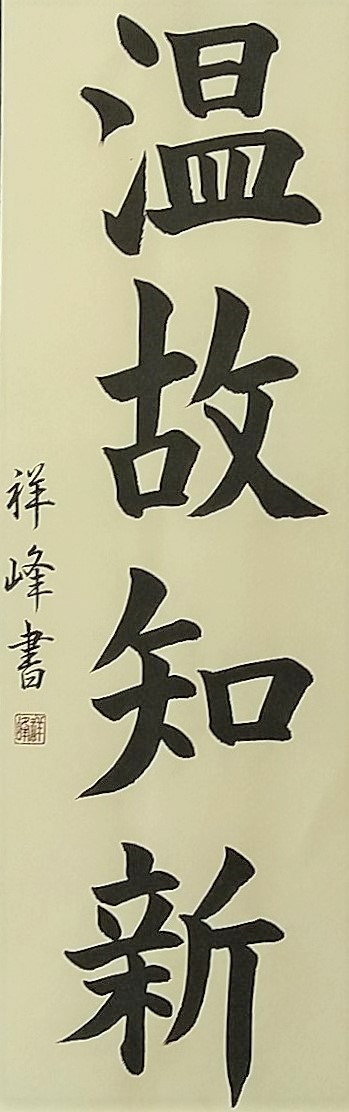 温故知新
祥峰書